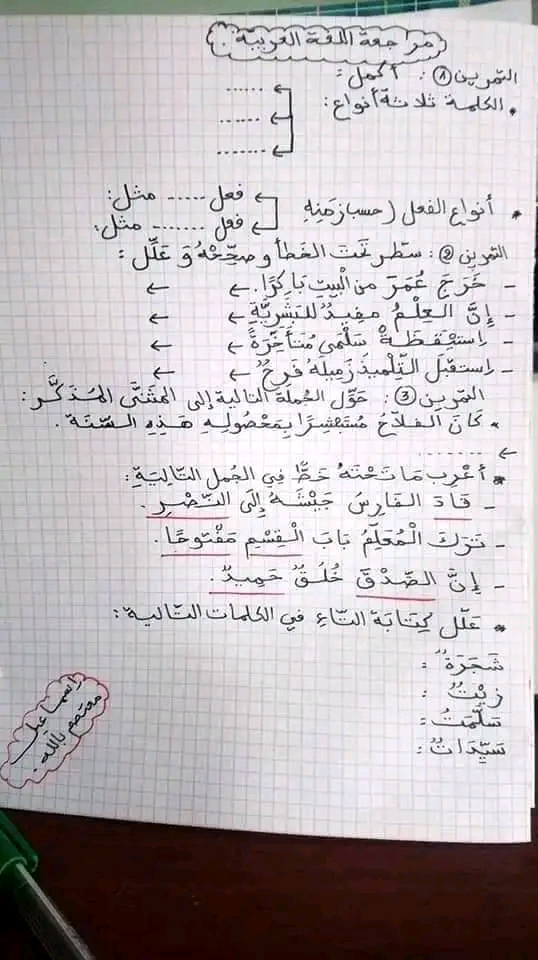 مراجعة اللغة العربية.
التمرين ①: أكمل:
• الكلمة ثلاثة أنواع:
......
......
.......
• أنواع الفعل (حسب زمنِهِ
فعل ...... مثل:
فعل ...... مثل:
التمرين ②: سطر تَحتَ الخَطأ وصحِّحْهُ وَ عَلِّل:
- خَرَجَ عُمَرَ من الْبيتِ بَاكِرًا. ← ←
- إنَّ العِلْمُ مفيدٌ للبَشَرِيَّةِ ← ←
- اِستَيْقَظَةْ سَلْمَى مُتَأَخِّرَةً ← ←
- اِستقبَلَ التِّلميذَ زَمِيلَهُ فَرِحٌ ← ←
التمرين ③: حَوِّل الجُملة التالية إلى المثنَّى المُذَكَّر:
• كَانَ الفلاَّحُ مُستَبْشِرًا بِمَحْصُولِهِ هَذِهِ السَّنَة.
← ..........
• أعْرِب مَا تَحْتَهُ خَطٌّ فِي الجُمل التَّالِيَةِ:
- قَادَ الفَارِسُ جَيْشَهُ إِلَى النَّصْرِ.
- تَرَكَ الْمُعَلِّمُ بَابَ الْقِسْمِ مَفْتُوحًا.
- إنَّ الصِّدْقَ خُلُقٌ حَمِيدٌ.
• عَلِّل كِتَابَةَ التَّاءِ في الكلمات التالية:
شَجَرَةٌ:
زيْتٌ:
سَلَّمَتْ:
سَيِّدَاتٌ:
اسماعيل
معتصم بالله.